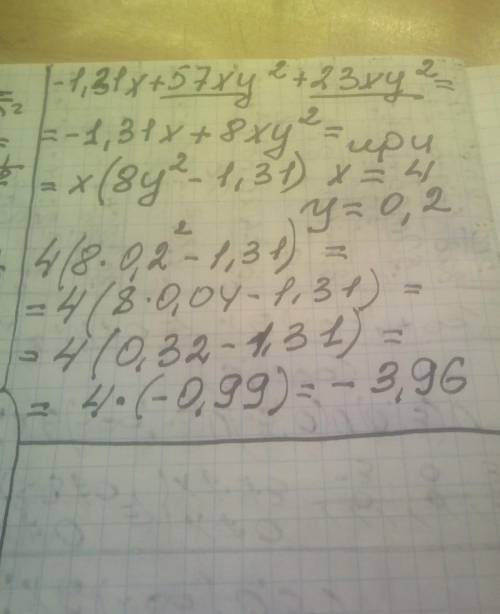 -1,31x+57xy²+23xy²=
=-1,31x+8xy²= при
=x(8y²-1,31) x=4
y=0,2
4(8·0,2²-1,31)=
=4(8·0,04-1,31)=
=4(0,32-1,31)=
=4·(-0,99)=-3,96